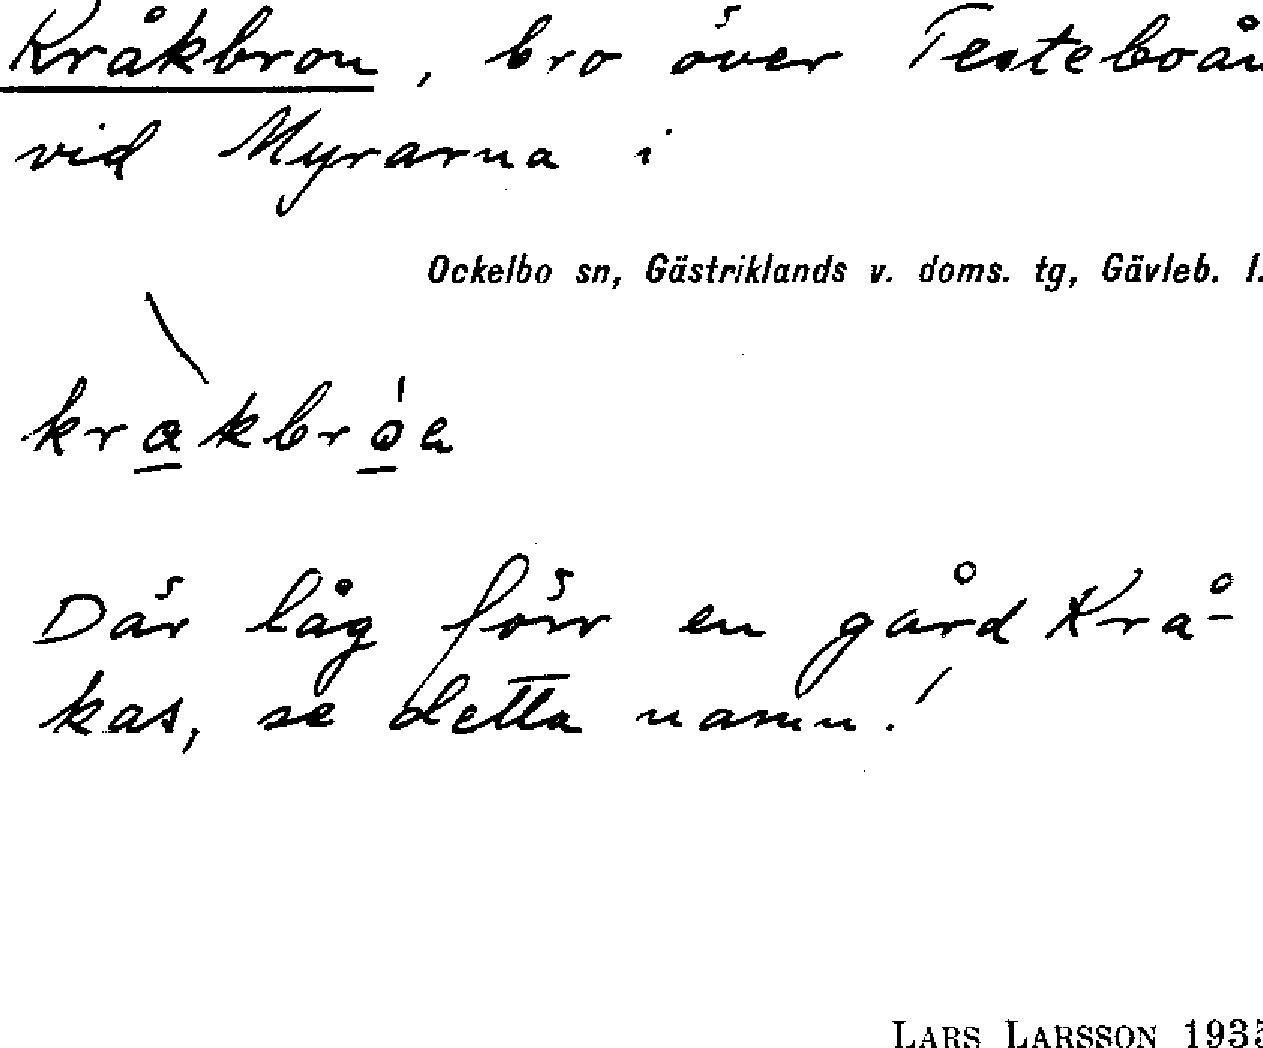 Kråkbron, bro över Testeboån
vid Myrarna i
Ockelbo sn, Gästriklands v. doms. tg, Gävleb. l.
Där låg förr en gård Krå-
kas, se detta namn!
LARS LARSSON 1935